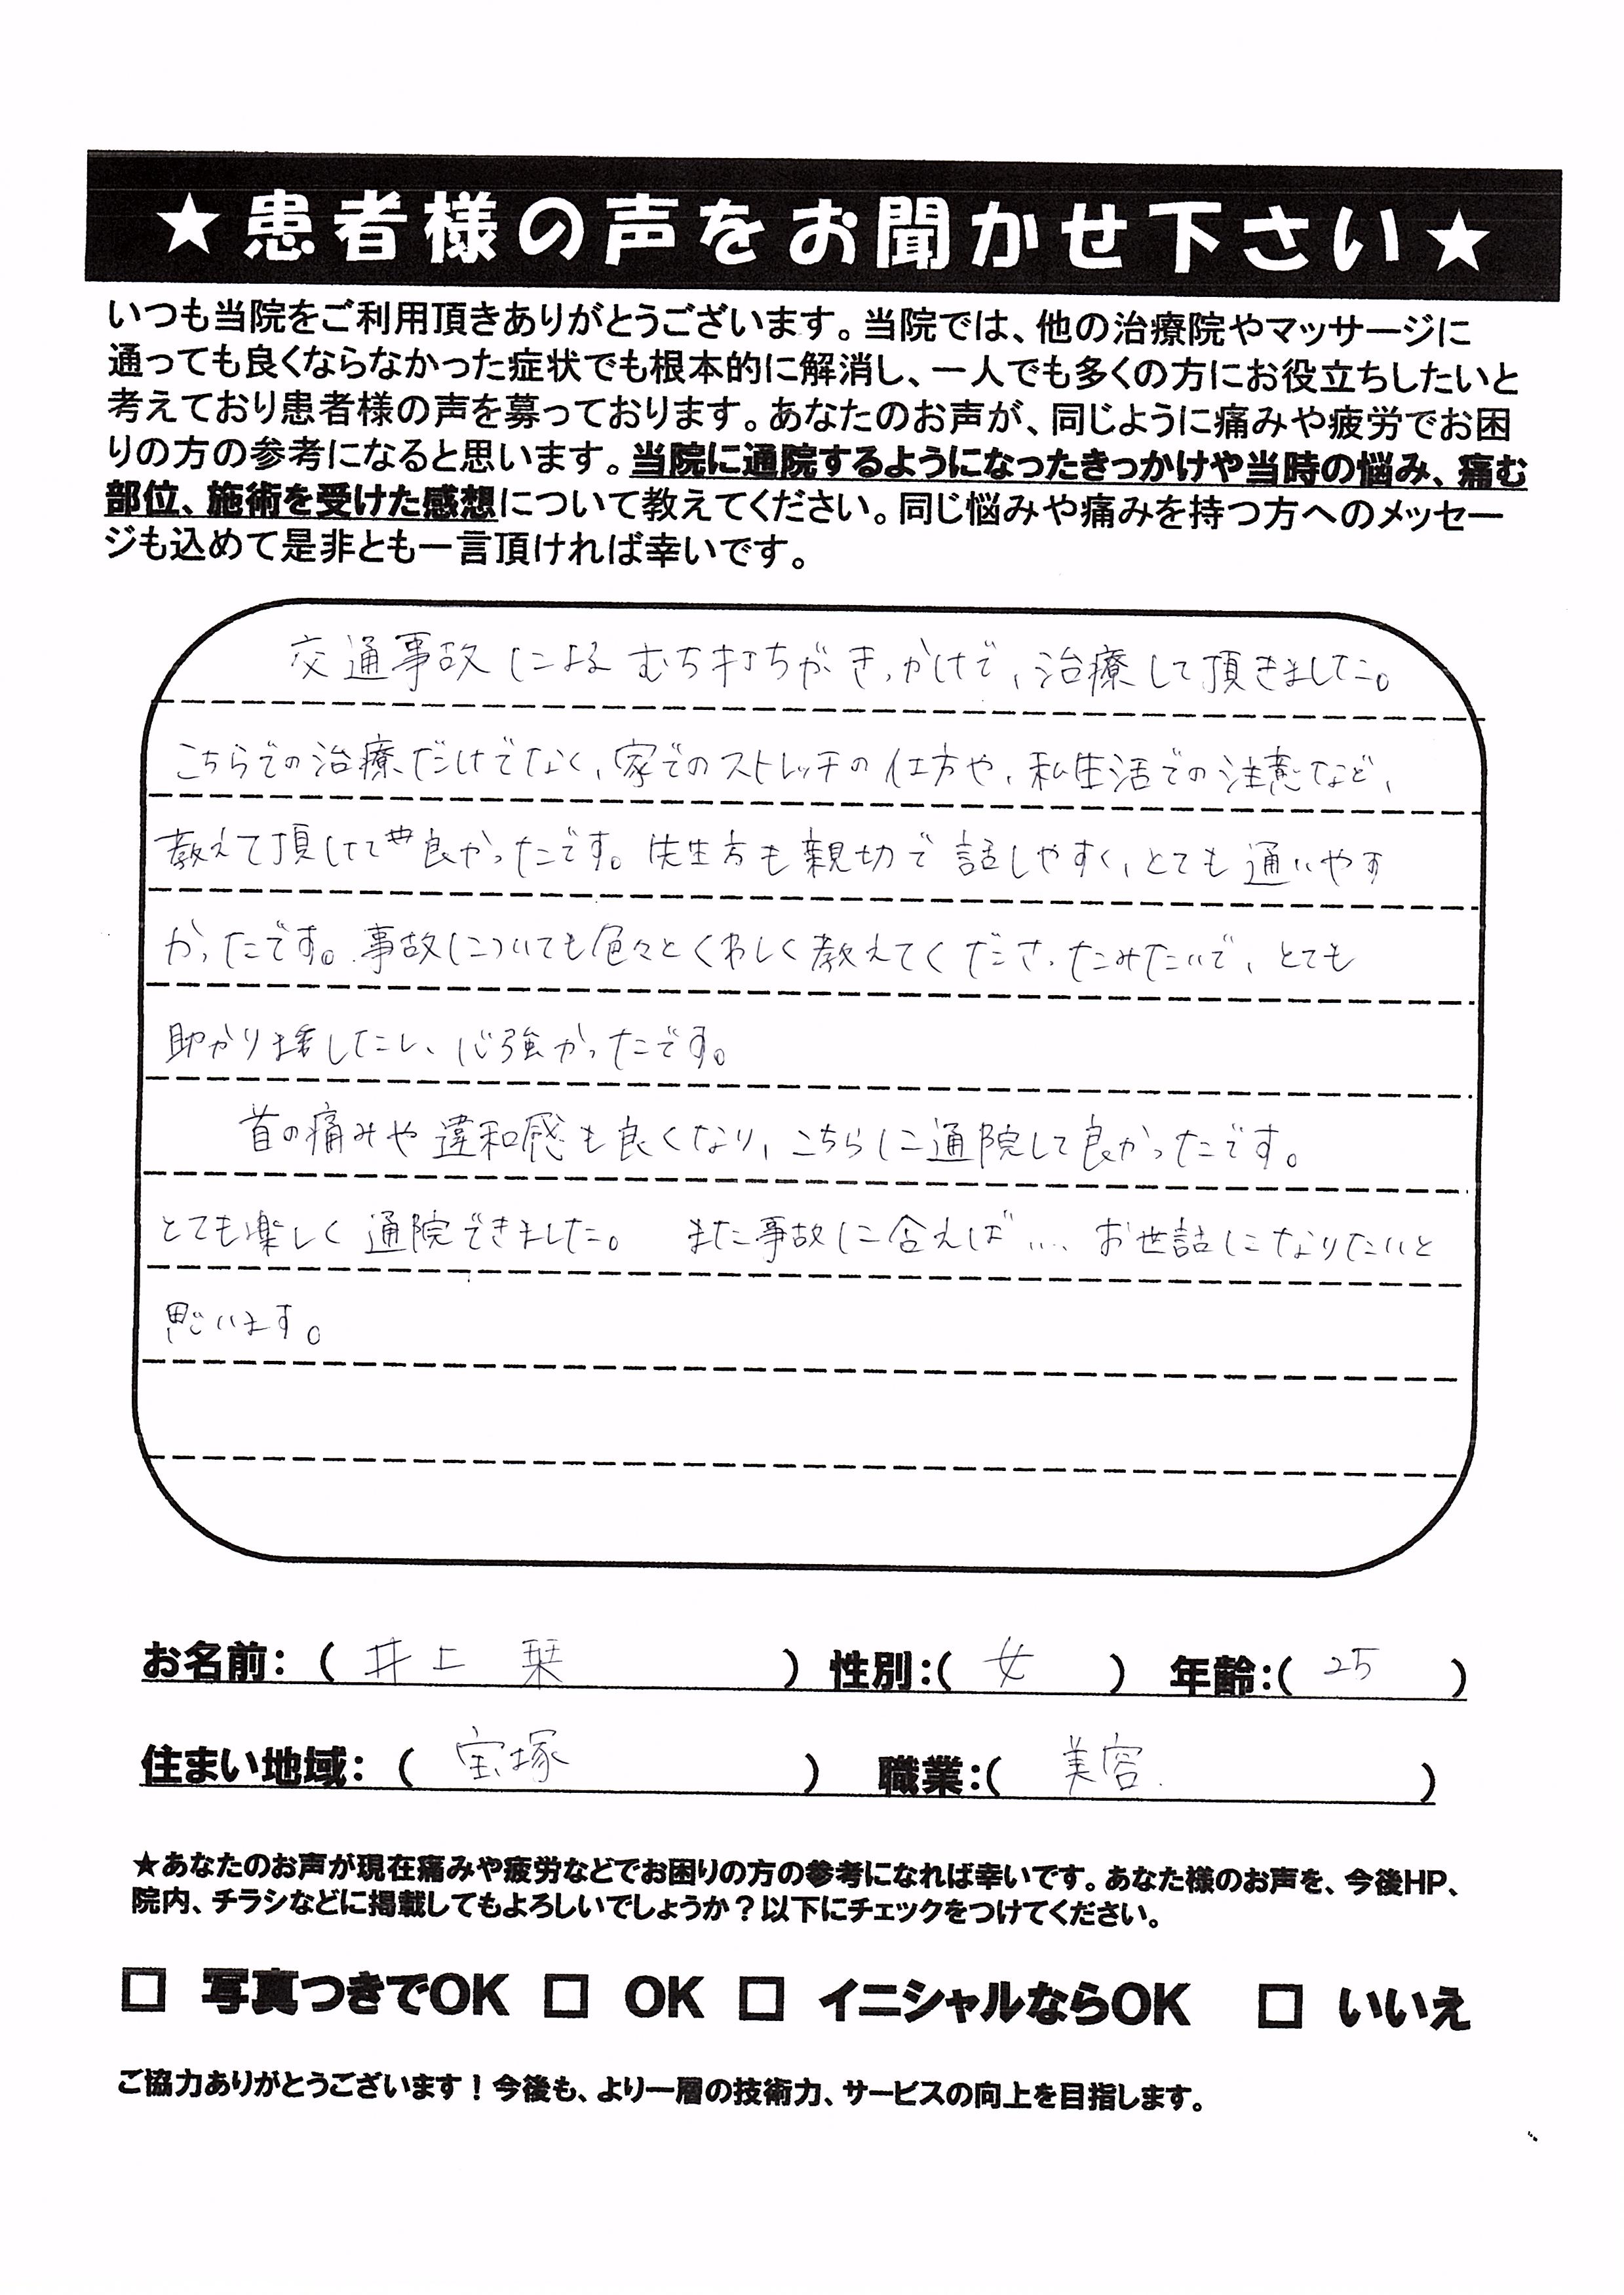 ★患者様の声をお聞かせ下さい★
いつも当院をご利用頂きありがとうございます。当院では、他の治療院やマッサージに
通っても良くならなかった症状でも根本的に解消し、一人でも多くの方にお役立ちしたいと
考えており患者様の声を募っております。あなたのお声が、同じように痛みや疲労でお困
りの方の参考になると思います。当院に通院するようになったきっかけや当時の悩み、痛む
部位、施術を受けた感想について教えてください。同じ悩みや痛みを持つ方へのメッセー
ジも込めて是非とも一言頂ければ幸いです。
交通事故によるむち打ちがきっかけで、治療して頂きました。
こちらでの治療だけでなく、家でのストレッチの仕方や、私生活での注意など、
教えて頂けて良かったです。先生方も親切で話しやすく、とても通いやす
かったです。事故についても色々とくわしく教えてくださったみたいで、とても
助かりましたし、心強かったです。
首の痛みや違和感も良くなり、こちらに通院して良かったです。
とても楽しく通院できました。 また事故に合えば… お世話になりたいと
思います。
お名前：（ 井上 栞 ） 性別：（ 女 ） 年齢：（ 25 ）
住まい地域：（ 宝塚 ） 職業：（ 美容. ）
★あなたのお声が現在痛みや疲労などでお困りの方の参考になれば幸いです。あなた様のお声を、今後HP、
院内、チラシなどに掲載してもよろしいでしょうか？以下にチェックをつけてください。
□ 写真つきでOK □ OK □ イニシャルならOK □ いいえ
ご協力ありがとうございます！今後も、より一層の技術力、サービスの向上を目指します。